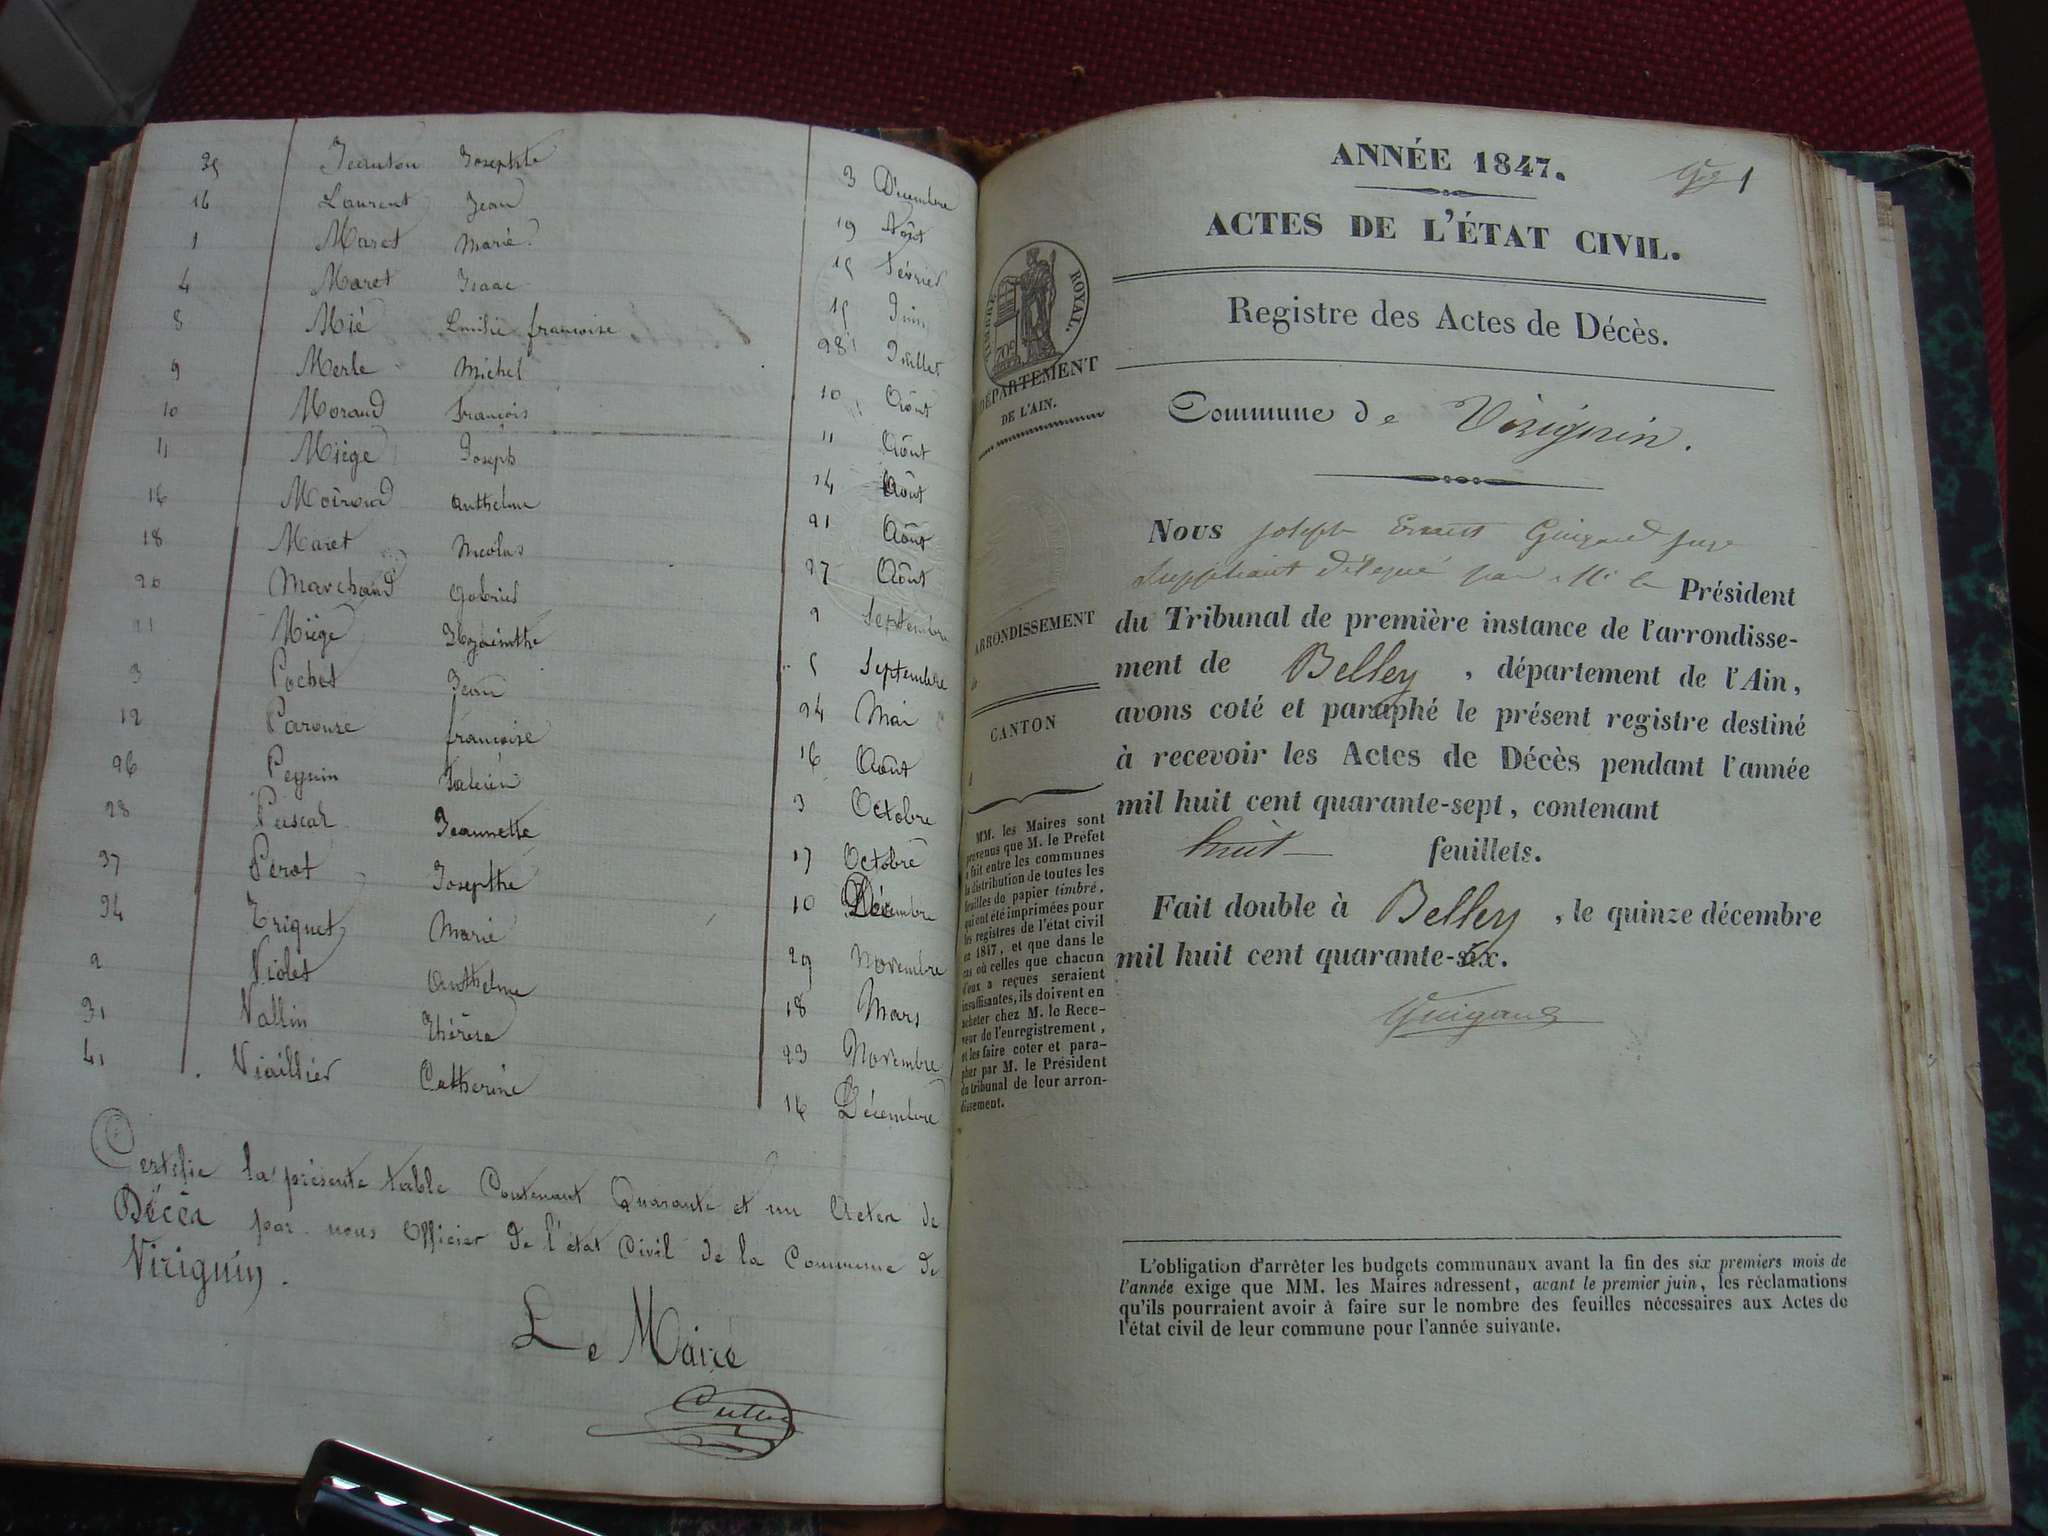 35 Jeanton Josephte 3 Décembre
16 Laurent Jean 19 Août
1 Maret Marie 15 Février
4 Maret Isaac 15 Juin
8 Mié Emilie françoise 28 Juillet
9 Merle Michel 10 Août
10 Morand François 11 Août
11 Miège Joseph 14 Août
16 Moiroud Anthelme 21 Août
18 Maret Nicolas 27 Août
20 Marchand Gabriel 2 Septembre
21 Miège Hyacinthe 5 Septembre
3 Pochet Jean 24 Mai
12 françoise 16 Août
26 Peyuin 3 Octobre
28 Jeannette 17 Octobre
37 Perot Josephte 10 Décembre
34 Triquet Marie 29 Novembre
2 Violet Anthelme 18 Mars
31 Vallin Thérèse 23 Novembre
41 Viaillier Catherine 16 Décembre
Certifie la présente table Contenant Quarante et un Actes de
Décès par nous Officier de l'état Civil de la Commune de
Virignin.
Le Maire
ANNÉE 1847.
1
ACTES DE L'ÉTAT CIVIL.
Registre des Actes de Décès.
TIMBRE ROYAL.
70c
DÉPARTEMENT
DE L'AIN.
ARRONDISSEMENT
CANTON
d
MM. les Maires sont
prévenus que M. le Préfet
a fait entre les communes
la distribution de toutes les
feuilles de papier timbré,
qui ont été imprimées pour
les registres de l'état civil
en 1847, et que dans le
cas où celles que chacun
d'eux a reçues seraient
insuffisantes, ils doivent en
acheter chez M. le Rece-
veur de l'enregistrement,
et les faire coter et para-
pher par M. le Président
du tribunal de leur arron-
dissement.
Commune de Virignin.
Nous Joseph Ernest Guigard Juge
Suppléant délégué par Mr le Président
du Tribunal de première instance de l'arrondisse-
ment de Belley, département de l'Ain,
avons coté et paraphé le présent registre destiné
à recevoir les Actes de Décès pendant l'année
mil huit cent quarante-sept, contenant
huit feuillets.
Fait double à Belley, le quinze décembre
mil huit cent quarante-six.
Guigard
L'obligation d'arrêter les budgets communaux avant la fin des six premiers mois de
l'année exige que MM. les Maires adressent, avant le premier juin, les réclamations
qu'ils pourraient avoir à faire sur le nombre des feuilles nécessaires aux Actes de
l'état civil de leur commune pour l'année suivante.